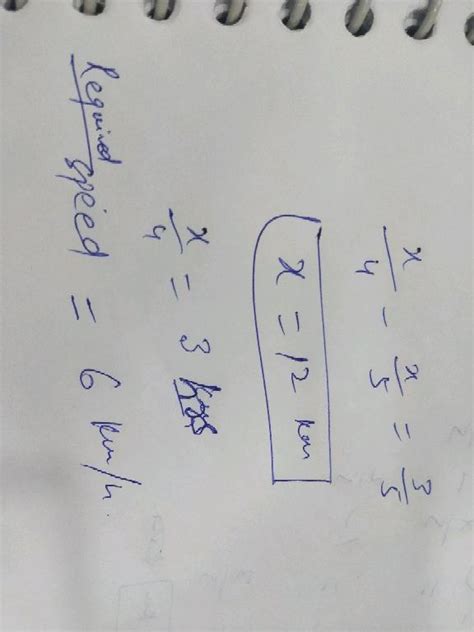 x/4 - x/5 = 3/5
x = 12 km
x/4 = 3
Required speed = 6 km/h.